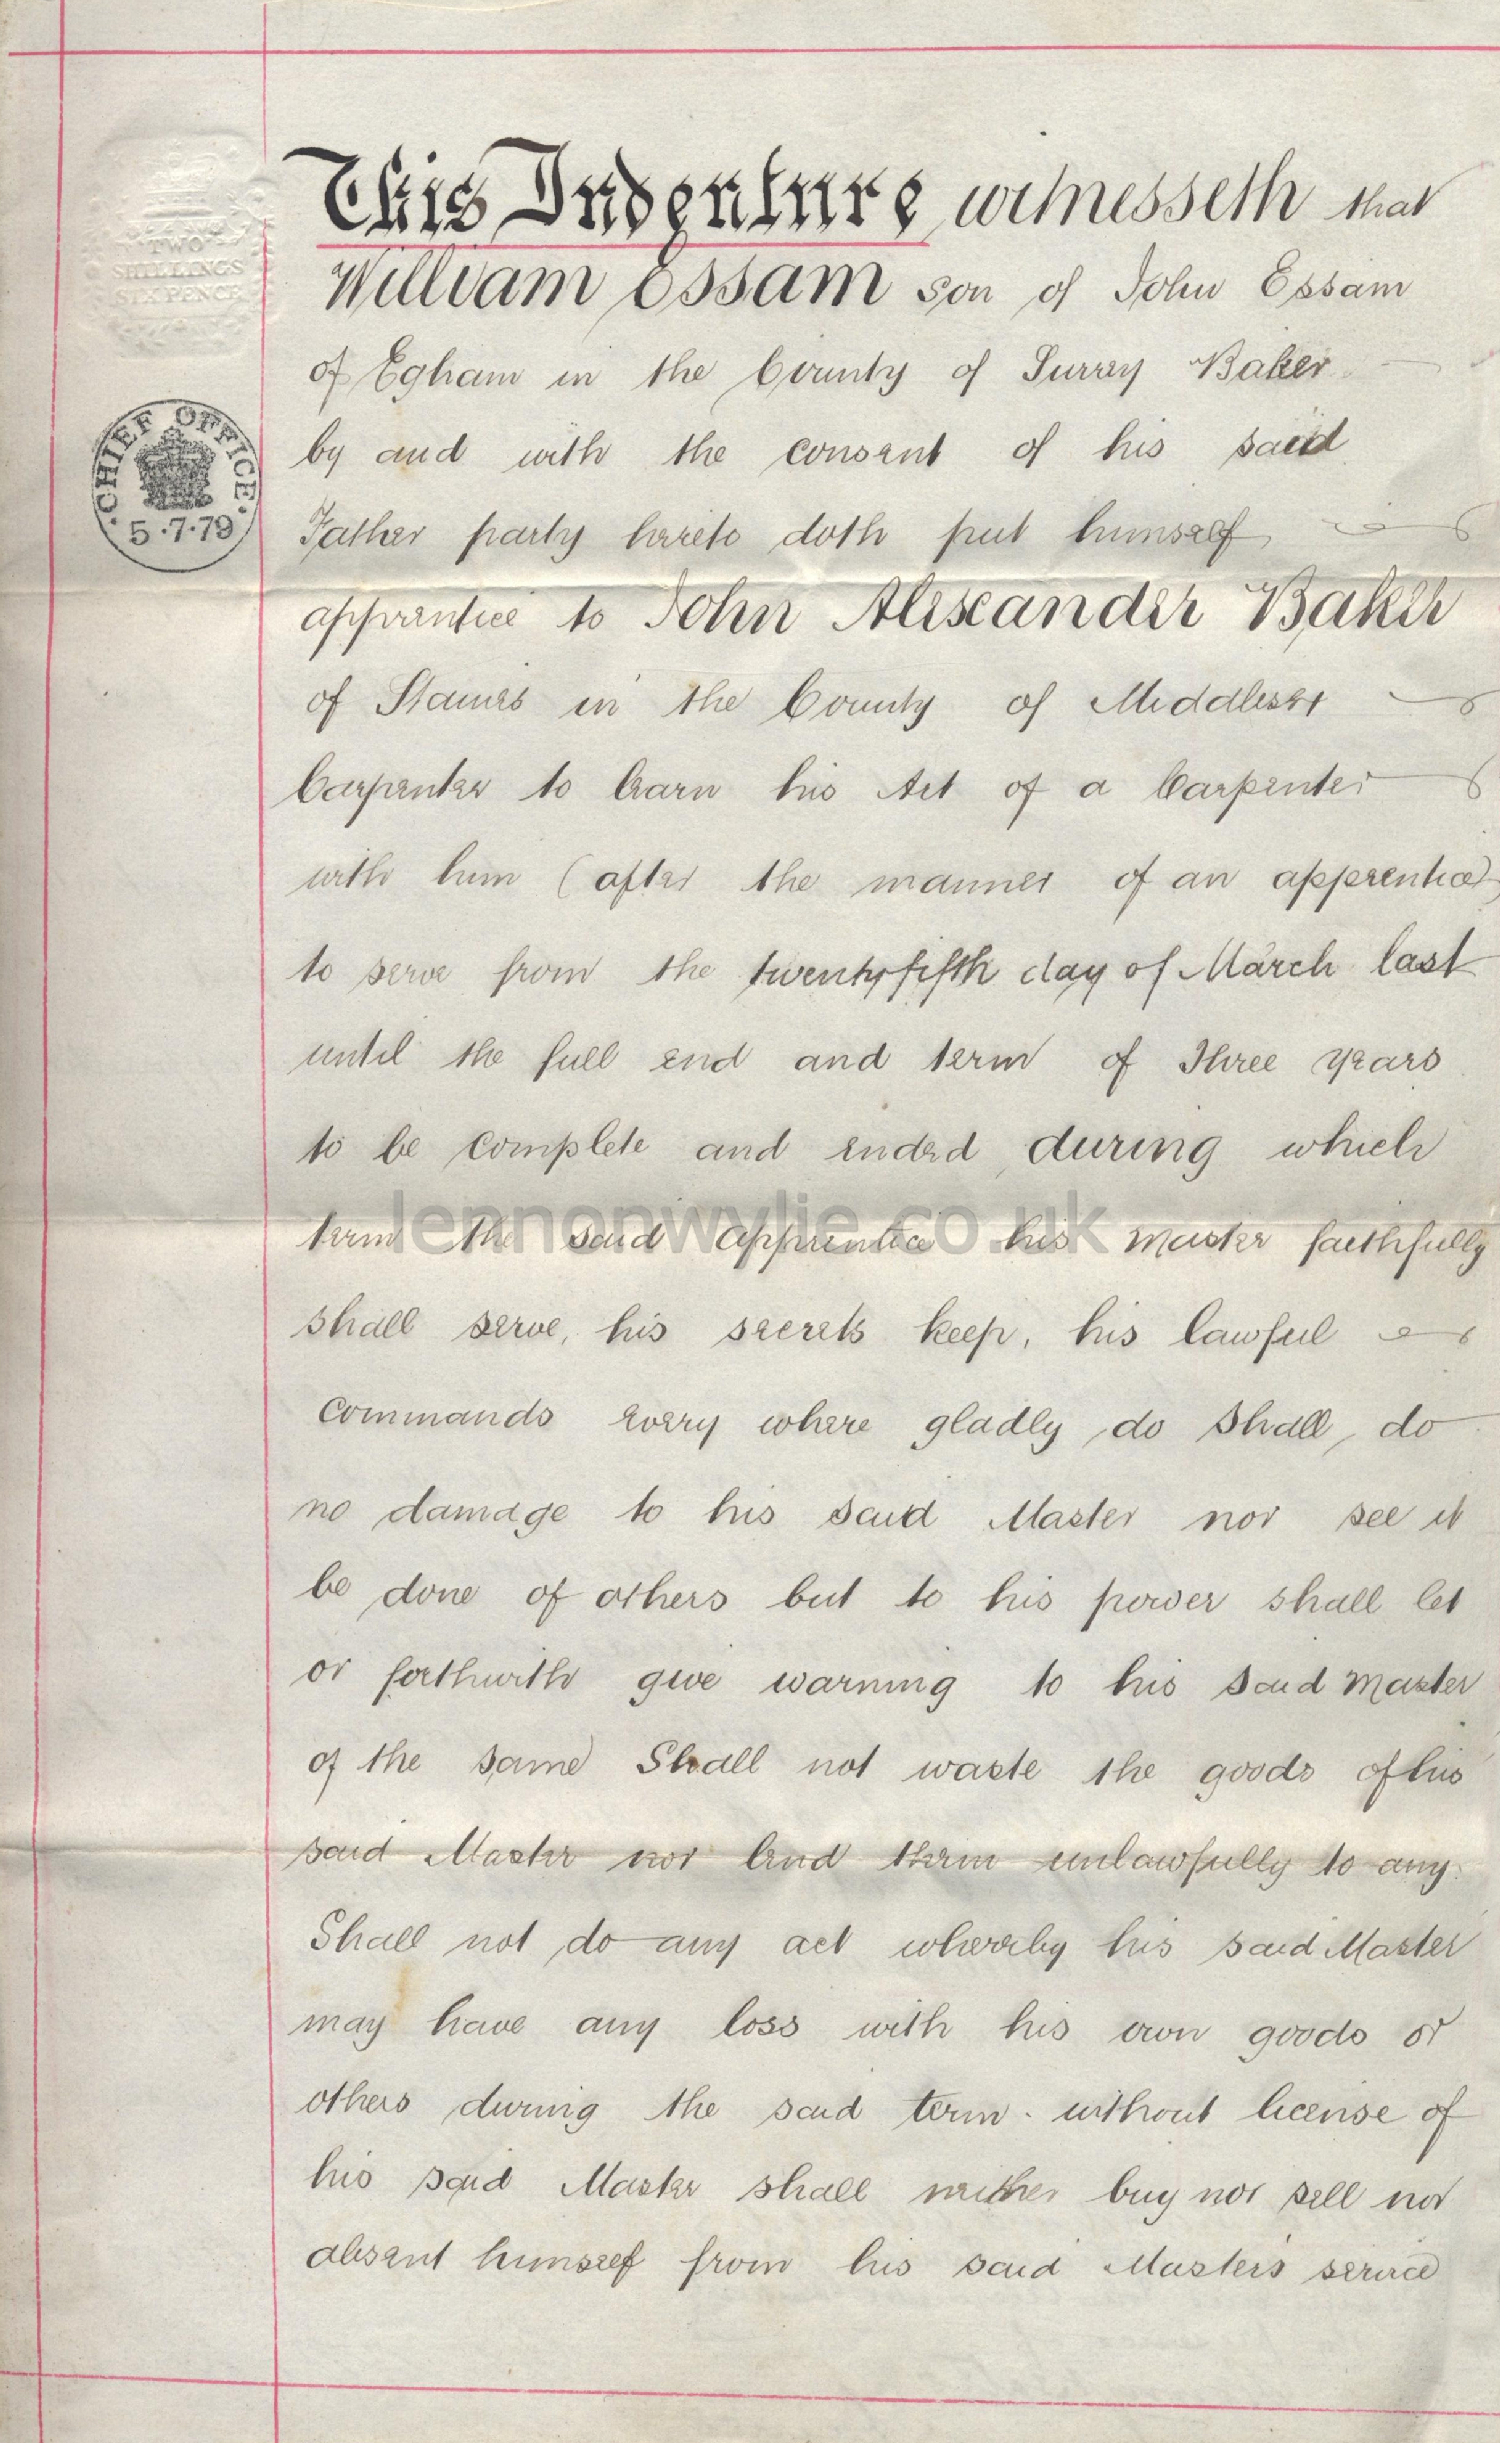 This Indenture witnesseth that
William Essam son of John Essam
of Egham in the County of Surrey Baker
by and with the consent of his said
Father party hereto doth put himself
apprentice to John Alexander Baker
of Staines in the County of Middlesex
Carpenter to learn his Art of a Carpenter
with him (after the manner of an apprentice)
to serve from the twenty fifth day of March last
until the full end and term of Three years
to be complete and ended during which
term the said apprentice his master faithfully
shall serve, his secrets keep, his lawful
commands every where gladly do shall, do
no damage to his said Master nor see it
be done of others but to his power shall let
or forthwith give warning to his said Master
of the same Shall not waste the goods of his
said Master nor lend them unlawfully to any.
Shall not do any act whereby his said Master
may have any loss with his own goods or
others during the said term. without license of
his said Master shall neither buy nor sell nor
absent himself from his said Masters service
TWO
SHILLINGS
SIX PENCE
CHIEF OFFICE
5.7.79
lennonwylie.co.uk